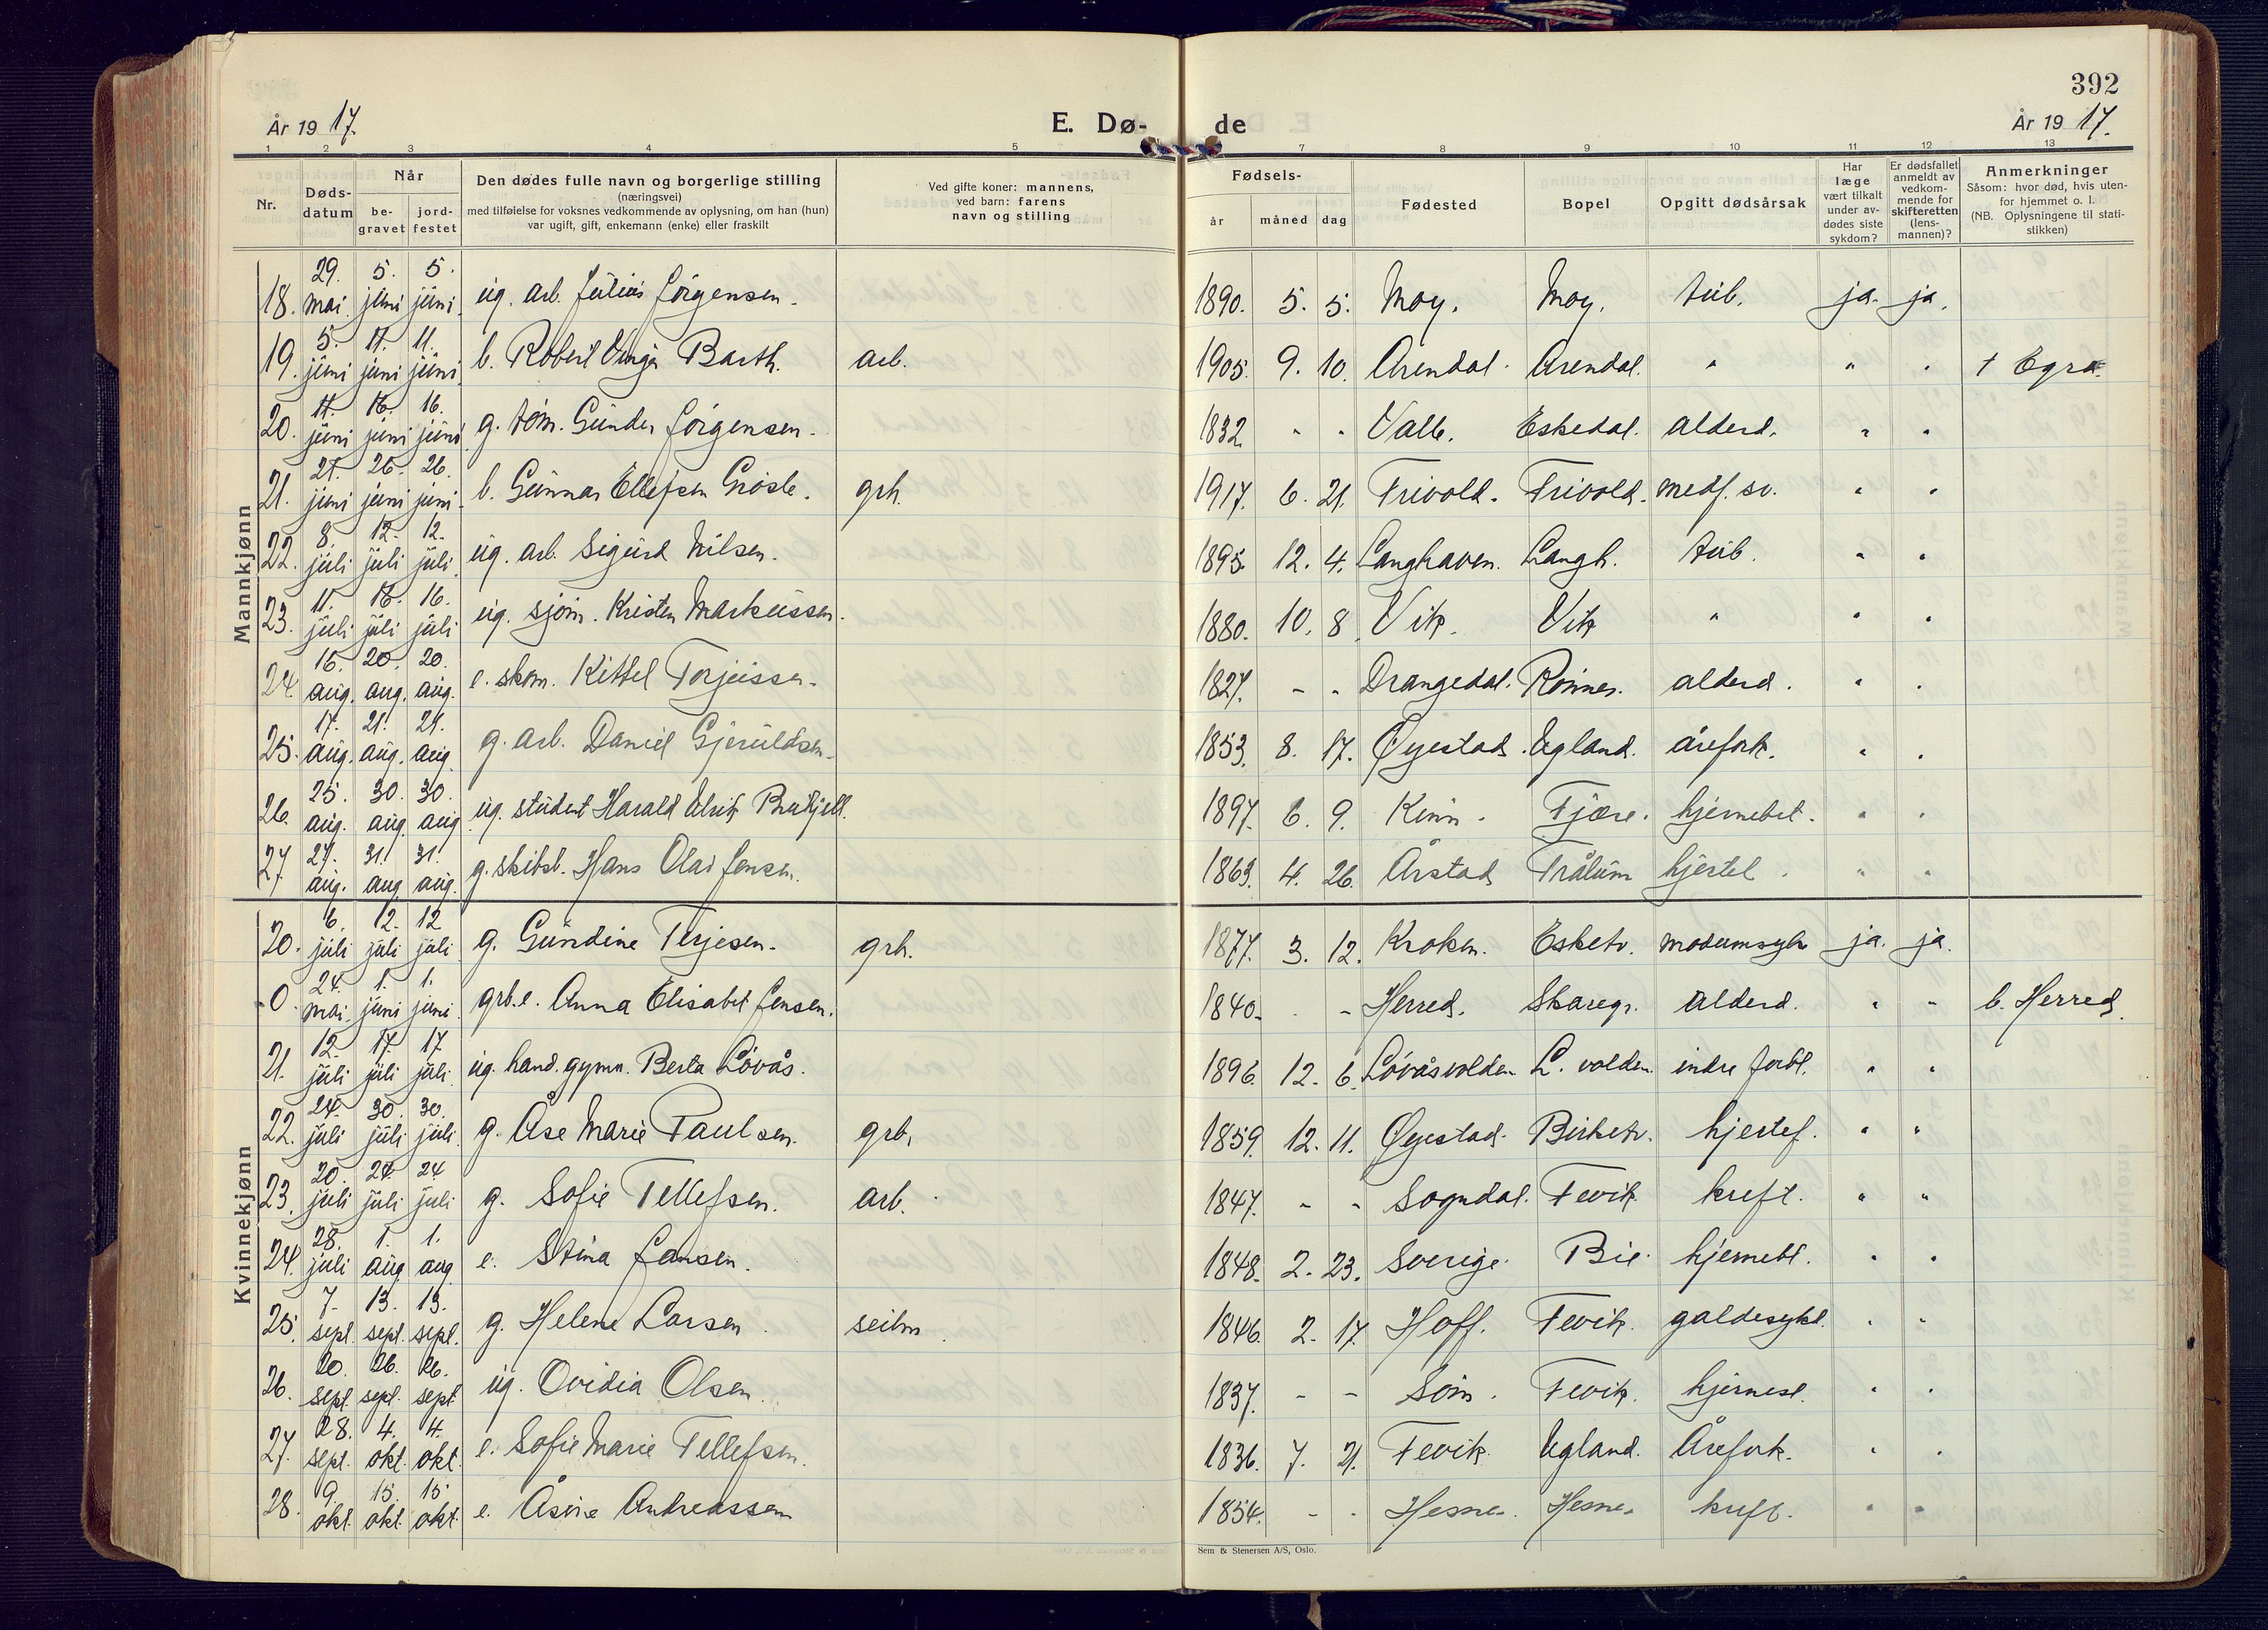 392
År 1917. E. Dø- de År 1917.
1 2 3 4 5 7 8 9 10 11 12 13
Nr. Døds-datum Når be-gravet jord-festet Den dødes fulle navn og borgerlige stilling (næringsvei) med tilføielse for voksnes vedkommende av oplysning, om han (hun) var ugift, gift, enkemann (enke) eller fraskilt Ved gifte koner: mannens, ved barn: farens navn og stilling Fødsels- år måned dag Fødested Bopel Opgitt dødsårsak Har læge vært tilkalt under av-dødes siste sykdom? Er dødsfallet anmeldt av vedkom-mende for skifteretten (lens-mannen)? Anmerkninger Såsom: hvor død, hvis uten-for hjemmet o. l. (NB. Oplysningene til stati-stikken)
Mannkjønn
18. 29. mai 5. juni 5. juni ug. arb. Julius Jörgensen. 1890. 5. 5. Moy. Moy. tub. ja. ja.
19. 5. juni 11. juni 11. juni b. Robert Unger Barth. arb. 1905. 9. 10. Arendal. Arendal. " " " † Egra.
20. 11. juni 16. juni 16. juni g. töm. Gunder Jörgensen. 1832 - - Valle. Eskedal. alderd. " "
21. 21. juni 26. juni 26. juni b. Gunnar Ellefsen Grösle. grb. 1917. 6. 21. Frivold. Frivold. medf. sv. " "
22. 8. juli 12. juli 12. juli ug. arb. Sigurd Nilsen. 1895. 12. 4. Langhaven. Langh. tub. " "
23. 11. juli 16. juli 16. juli ug. sjöm. Kristen Markussen. 1880. 10. 8. Vik. Vik " " "
24. 15. aug. 20. aug. 20. aug. e. skom. Kittel Torjussen. 1827. - - Drangedal. Rönnes. alderd. " "
25. 17. aug. 21. aug. 21. aug. g. arb. Daniel Gjeruldsen. 1853. 8. 17. Øyestad. Ugland. årefork. " "
26. 25. aug. 30. aug. 30. aug. ug. student Harald Ulrik 1897. 6. 9. Kinn. Fjære. hjernebet. " "
27. 27. aug. 31. aug. 31. aug. g. skibsb. Hans Olai Jensen. 1863. 4. 26. Årstad Trålum hjertel. " "
Kvinnekjønn
20. 6. juli 12. juli 12. juli g. Gundine Terjesen. grb. 1877. 3. 12. Kroken. Esketv. ja. ja.
0. 24. mai 1. juni 1. juni grb.e. Anna Elisabet Jensen. 1840. - - Herred. Skaregr. alderd. " " b. Herred.
21. 12. juli 17. juli 17. juli ug. hand.gymn. Berta Lövås. 1896. 12. 6. Lövåsvolden. L.volden. indre forbl. " "
22. 24. juli 30. juli 30. juli g. Åse Marie Paulsen. grb. 1859. 12. 11. Øyestad. Birketv. hjertef. " "
23. 20. juli 24. juli 24. juli g. Sofie Tellefsen. arb. 1847. - - Sogndal. Fevik kreft. " "
24. 28. juli 1. aug. 1. aug. e. Stina Jansen. 1848. 2. 23. Sverige. Bie. hjernebl. " "
25. 7. sept. 13. sept. 13. sept. g. Helene Larsen seilm. 1846. 2. 17. Hoff. Fevik. galdesykd. " "
26. 20. sept. 26. sept. 26. sept. ug. Ovidia Olsen. 1837. - - Söm. Fevik. hjernesl. " "
27. 28. sept. 4. okt. 4. okt. e. Sofie Marie Tellefsen. 1836. 7. 21. Fevik. Ugland. Årefork. " "
28. 9. okt. 15. okt. 15. okt. e. Åsine Andreassen 1854. - - Hesnes. Hesnes kreft. " "
Sem & Stenersen A/S, Oslo.